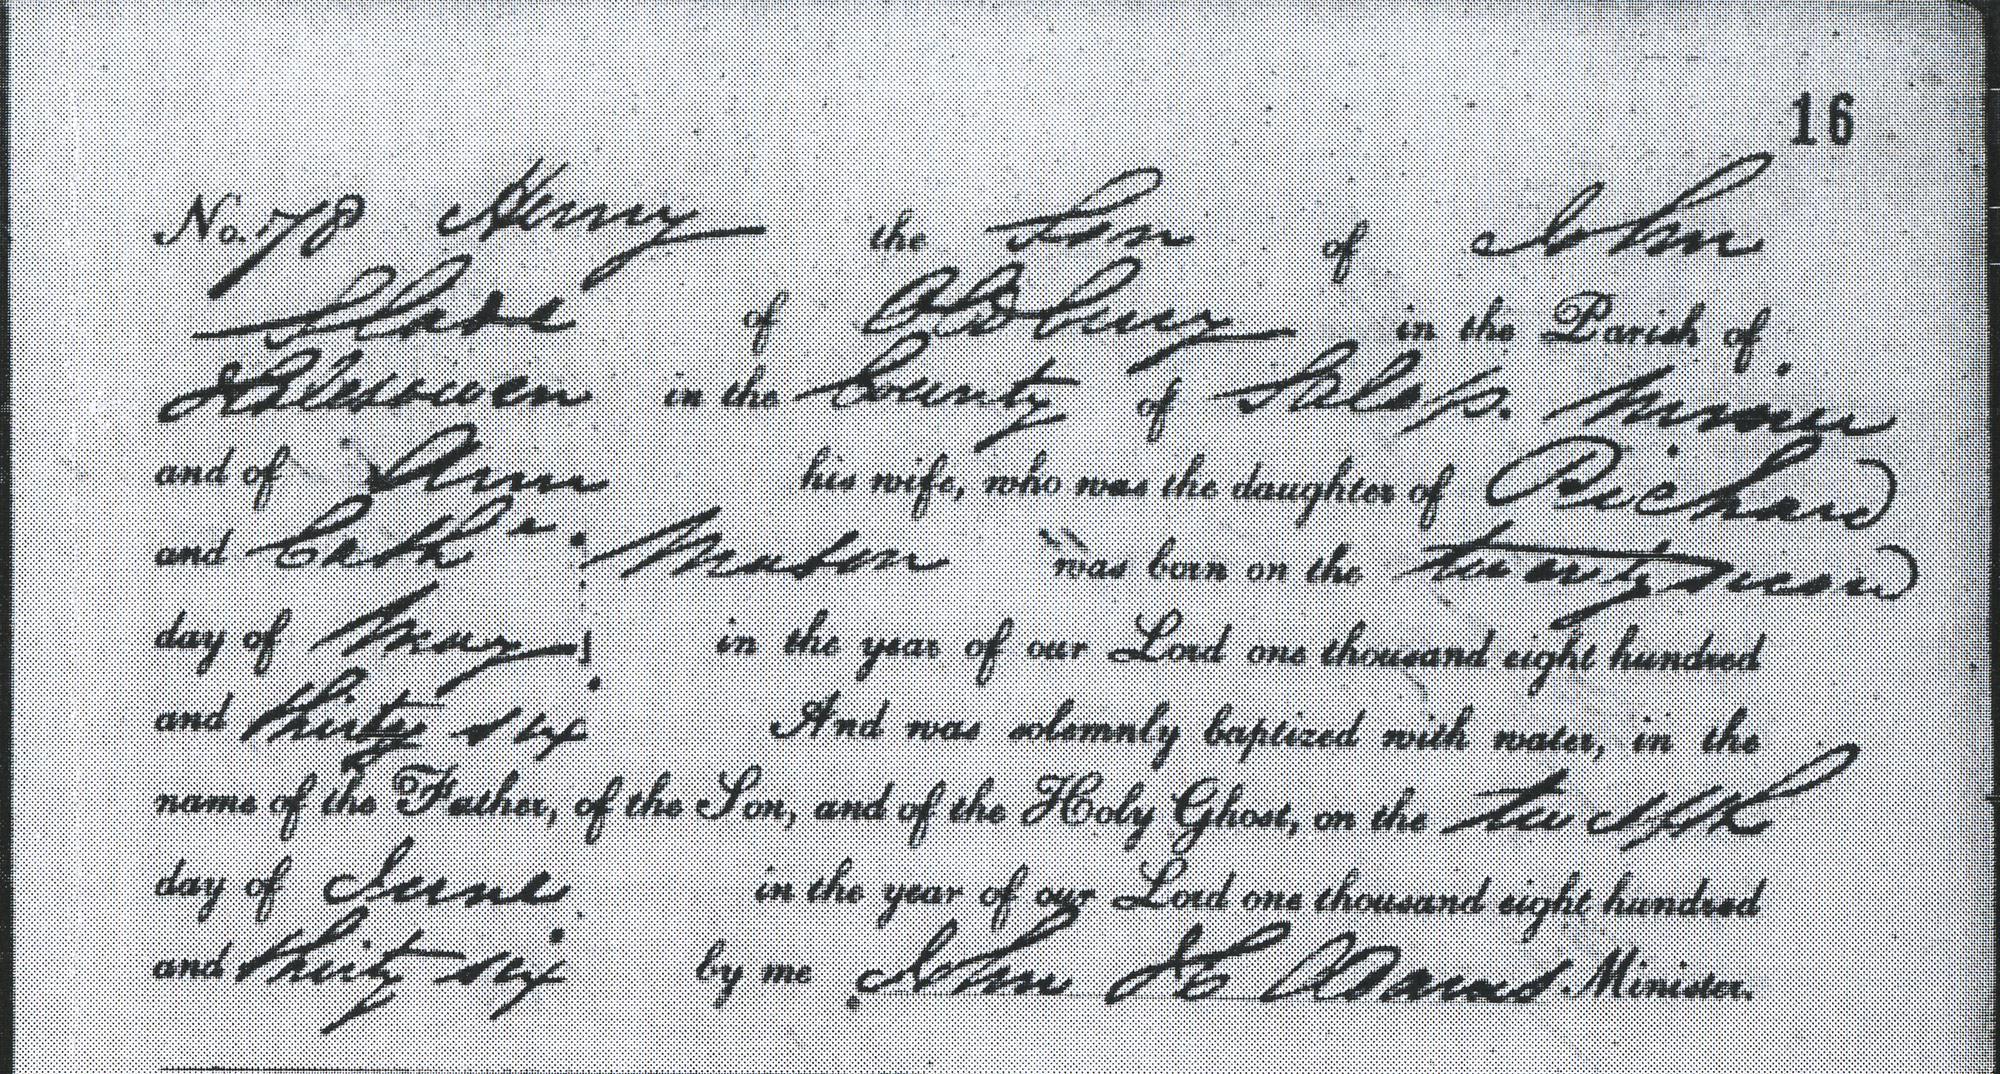 16
No. 78 Henry the Son of John
Slade of Oldbury in the Parish of
Halesowen in the County of Salop. Miner
and of Ann his wife, who was the daughter of Richard
and Cath^a. Mason was born on the twenty second
day of May in the year of our Lord one thousand eight hundred
and thirty six And was solemnly baptized with water, in the
name of the Father, of the Son, and of the Holy Ghost, on the twelfth
day of June in the year of our Lord one thousand eight hundred
and thirty six by me John H Adams Minister.